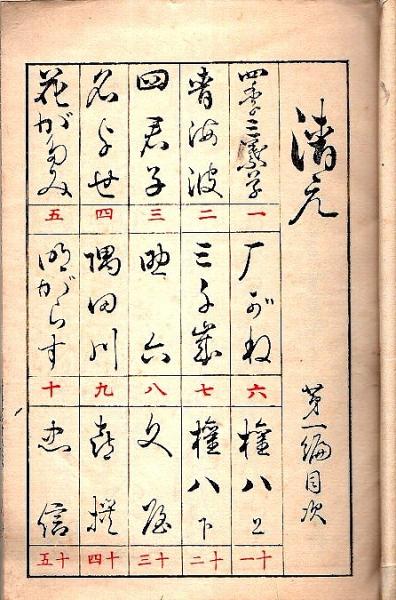 清元
第一編目次
四季三葉草
一
青海波
二
四君子
三
名よせ
四
花がたみ
五
厂がね
六
三千歳
七
助六
八
隅田川
九
明がらす
十
權八上
十一
權八下
十二
文屋
十三
喜撰
十四
忠信
十五